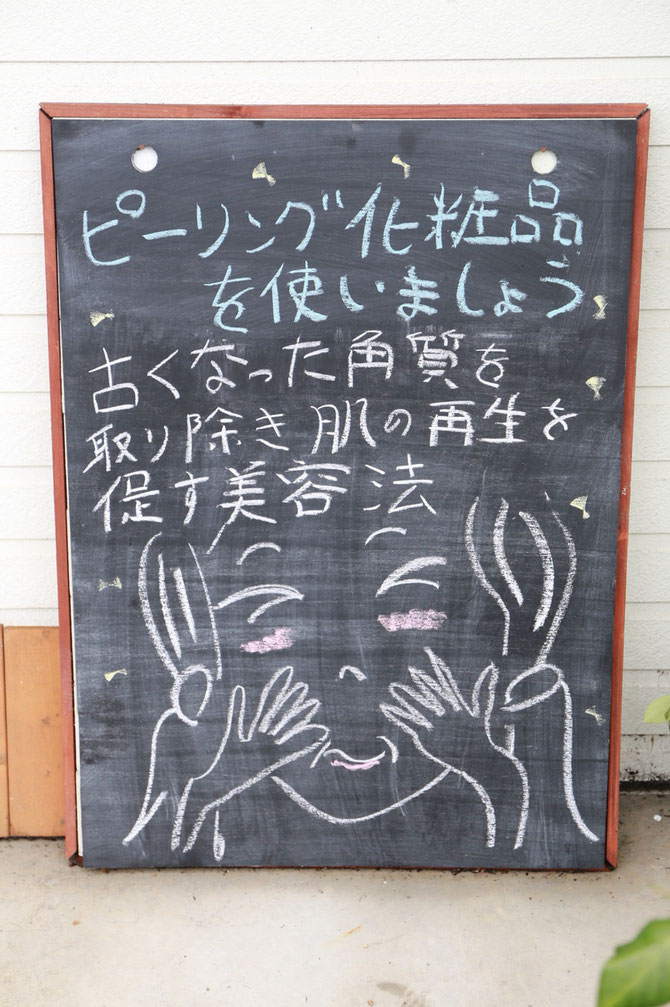 ピーリング化粧品
を使いましょう
古くなった角質を
取り除き肌の再生を
促す美容法